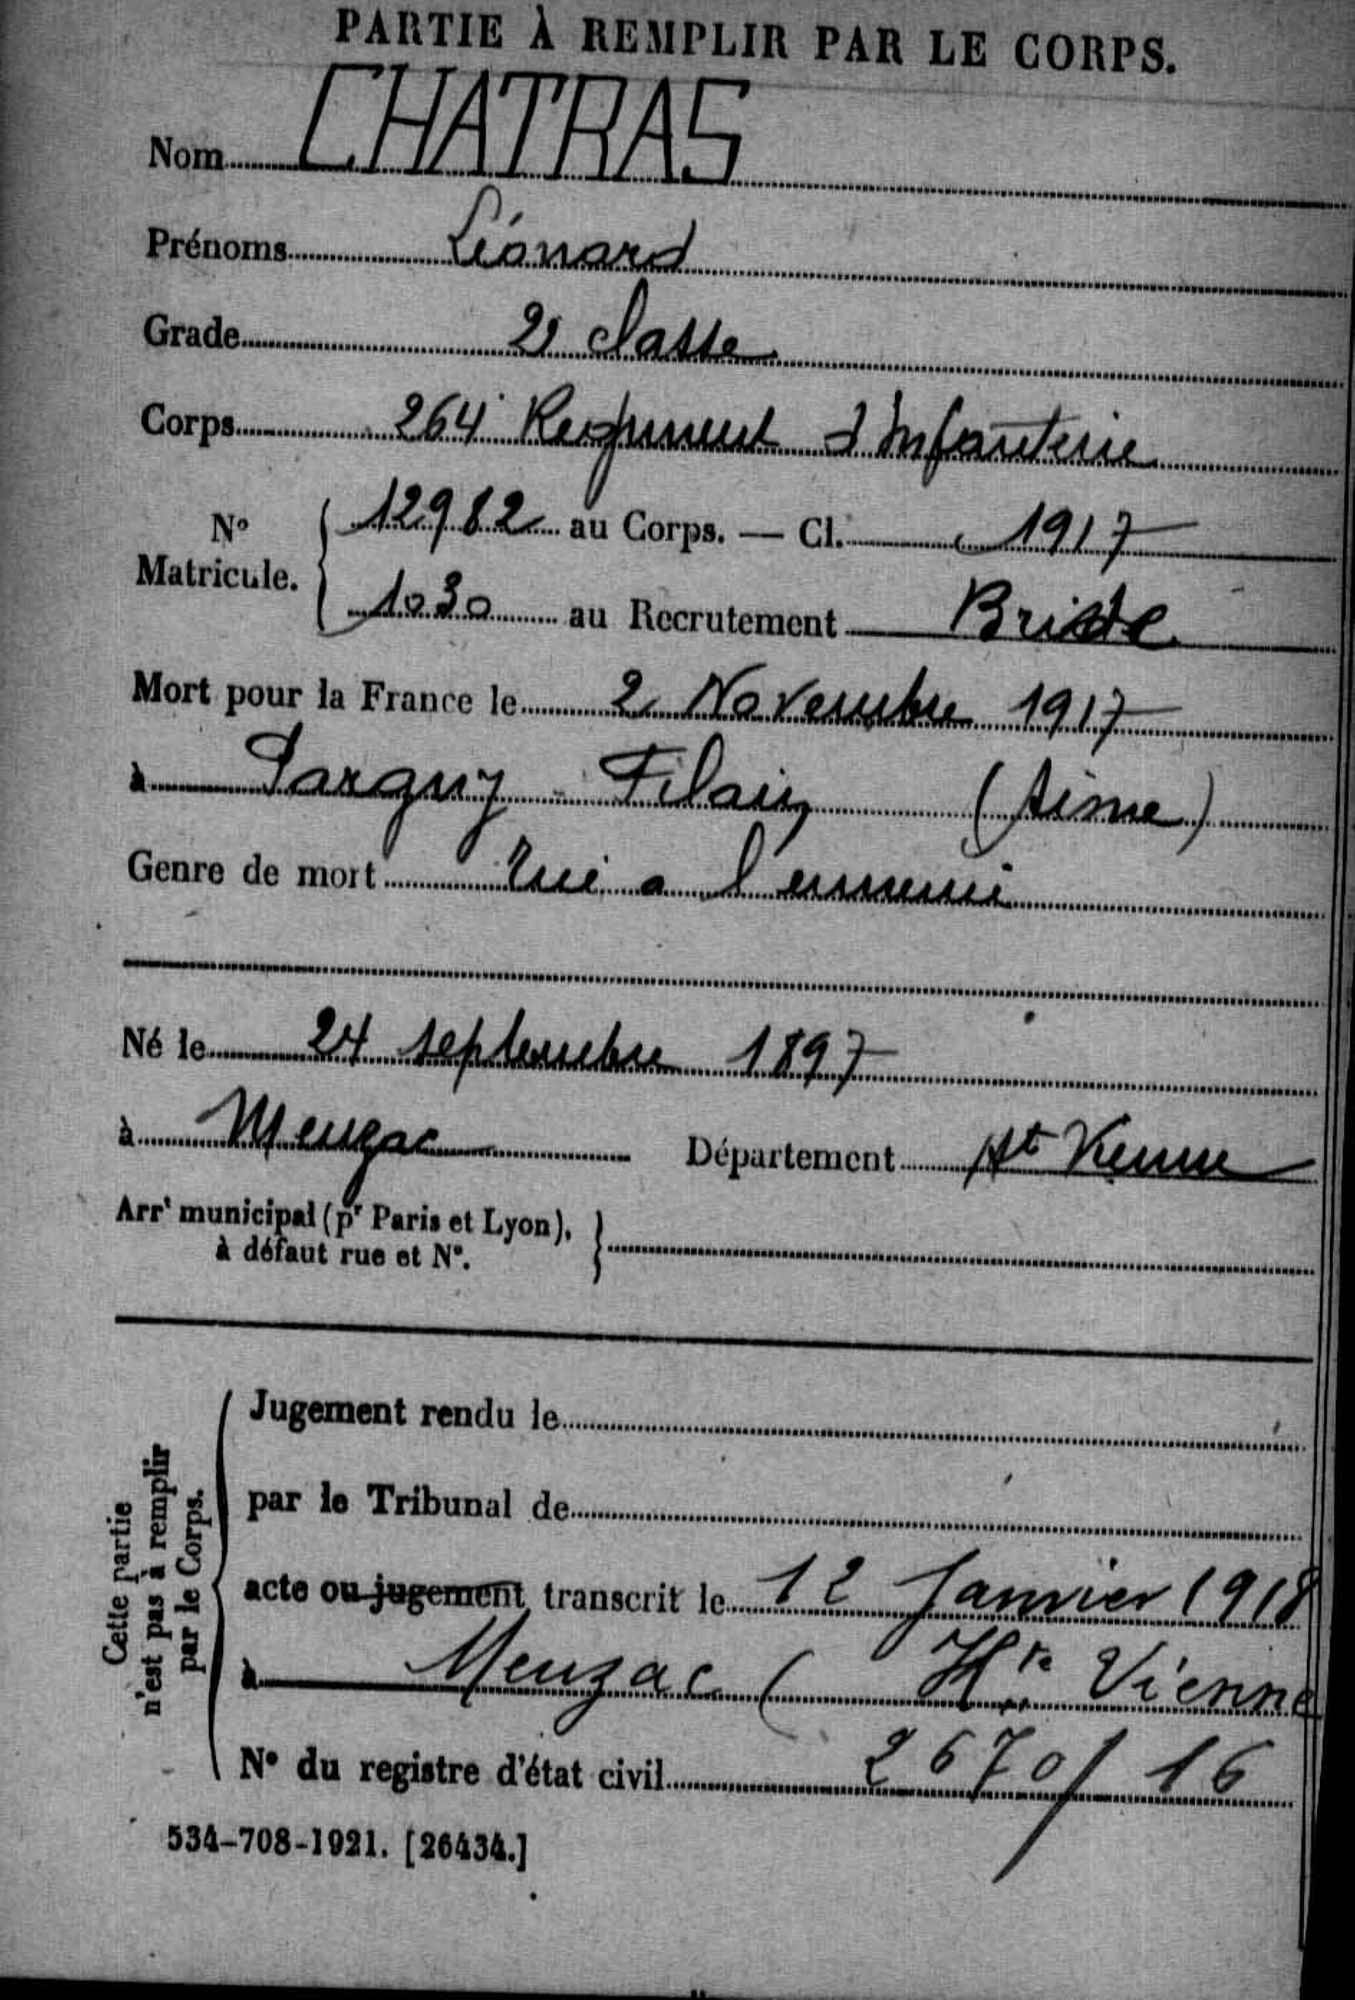 PARTIE À REMPLIR PAR LE CORPS.
Nom CHATRAS
Prénoms Léonard
Grade 2e classe
Corps 264 Regiment d'Infanterie
N° Matricule. { 12982 au Corps. — Cl. 1917
1030 au Recrutement Brive
Mort pour la France le 2 Novembre 1917
à Pargny Filain (Aisne)
Genre de mort Tué a l'ennemi
Né le 24 septembre 1897
à Meuzac Département Hte Vienne
Arrt municipal (pr Paris et Lyon), }
à défaut rue et N°.
Cette partie
n'est pas à remplir
par le Corps.
Jugement rendu le
par le Tribunal de
acte ou jugement transcrit le 12 Janvier 1918
à Meuzac ( Hte Vienne
N° du registre d'état civil 2670/16
534-708-1921. [26434.]